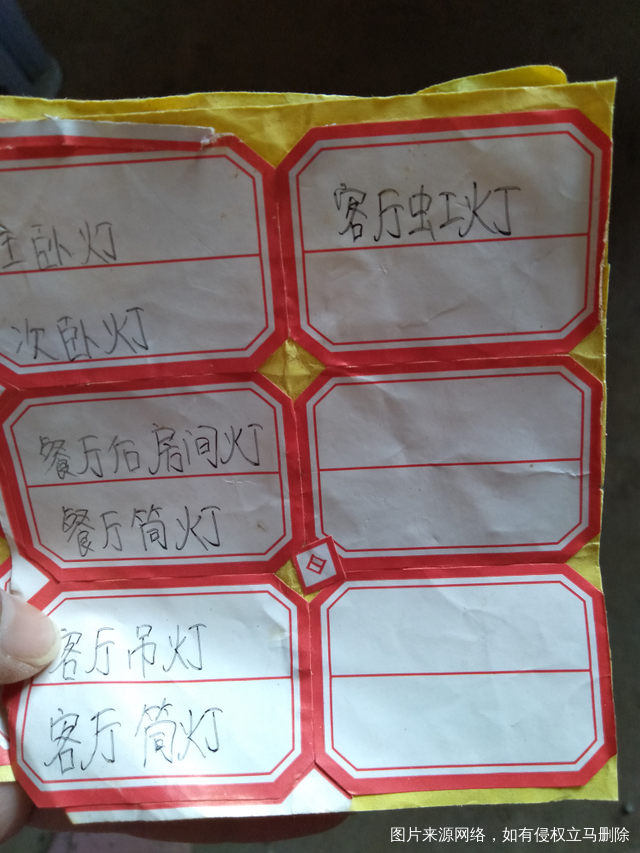 主卧灯
次卧灯
客厅虹灯
餐厅后房间灯
餐厅筒灯
客厅吊灯
客厅筒灯
图片来源网络，如有侵权立马删除